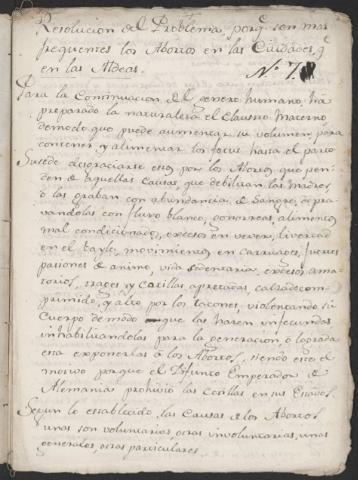 Resolucion del Problema, porq.e son mas
frequentes los Abortos en las Ciudades, q.e
en las Aldeas.
N.o 7.
Para la Continuacion del genero humano, ha
preparado la naturaleza el Claustro Materno
de modo que puede aumentar su volumen, para
contener, y alimentar los fetus hasta el parto
Sucede desgraciarse estos por los Abortos, que pen-
den de aquellas Causas, que debilitan las Madres,
o las graban con abundancia de Sangre, depra-
vandolas con fluxo blanco, gonorreas, alimentos
mal condicionados, excesos en vever, livertad
en el bayle, movimientos en carruages, fuertes
pasiones de animo, vida sedentaria, excesos ama-
torios, trages y Cotillas apretadas, calzado com-
primido, y alto por los tacones, violentando su
Cuerpo de modo que las hacen infecundas
inhabilitandolas para la generacion, o lograda
esta exponerlas a los Abortos, siendo este el
motivo porque el Difunto Emperador de
Alemania prohivio las Cotillas en sus Estados.
Segun lo establecido, las Causas de los Abortos
unas son voluntarias, otras involuntarias, unas
generales, otras particulares.